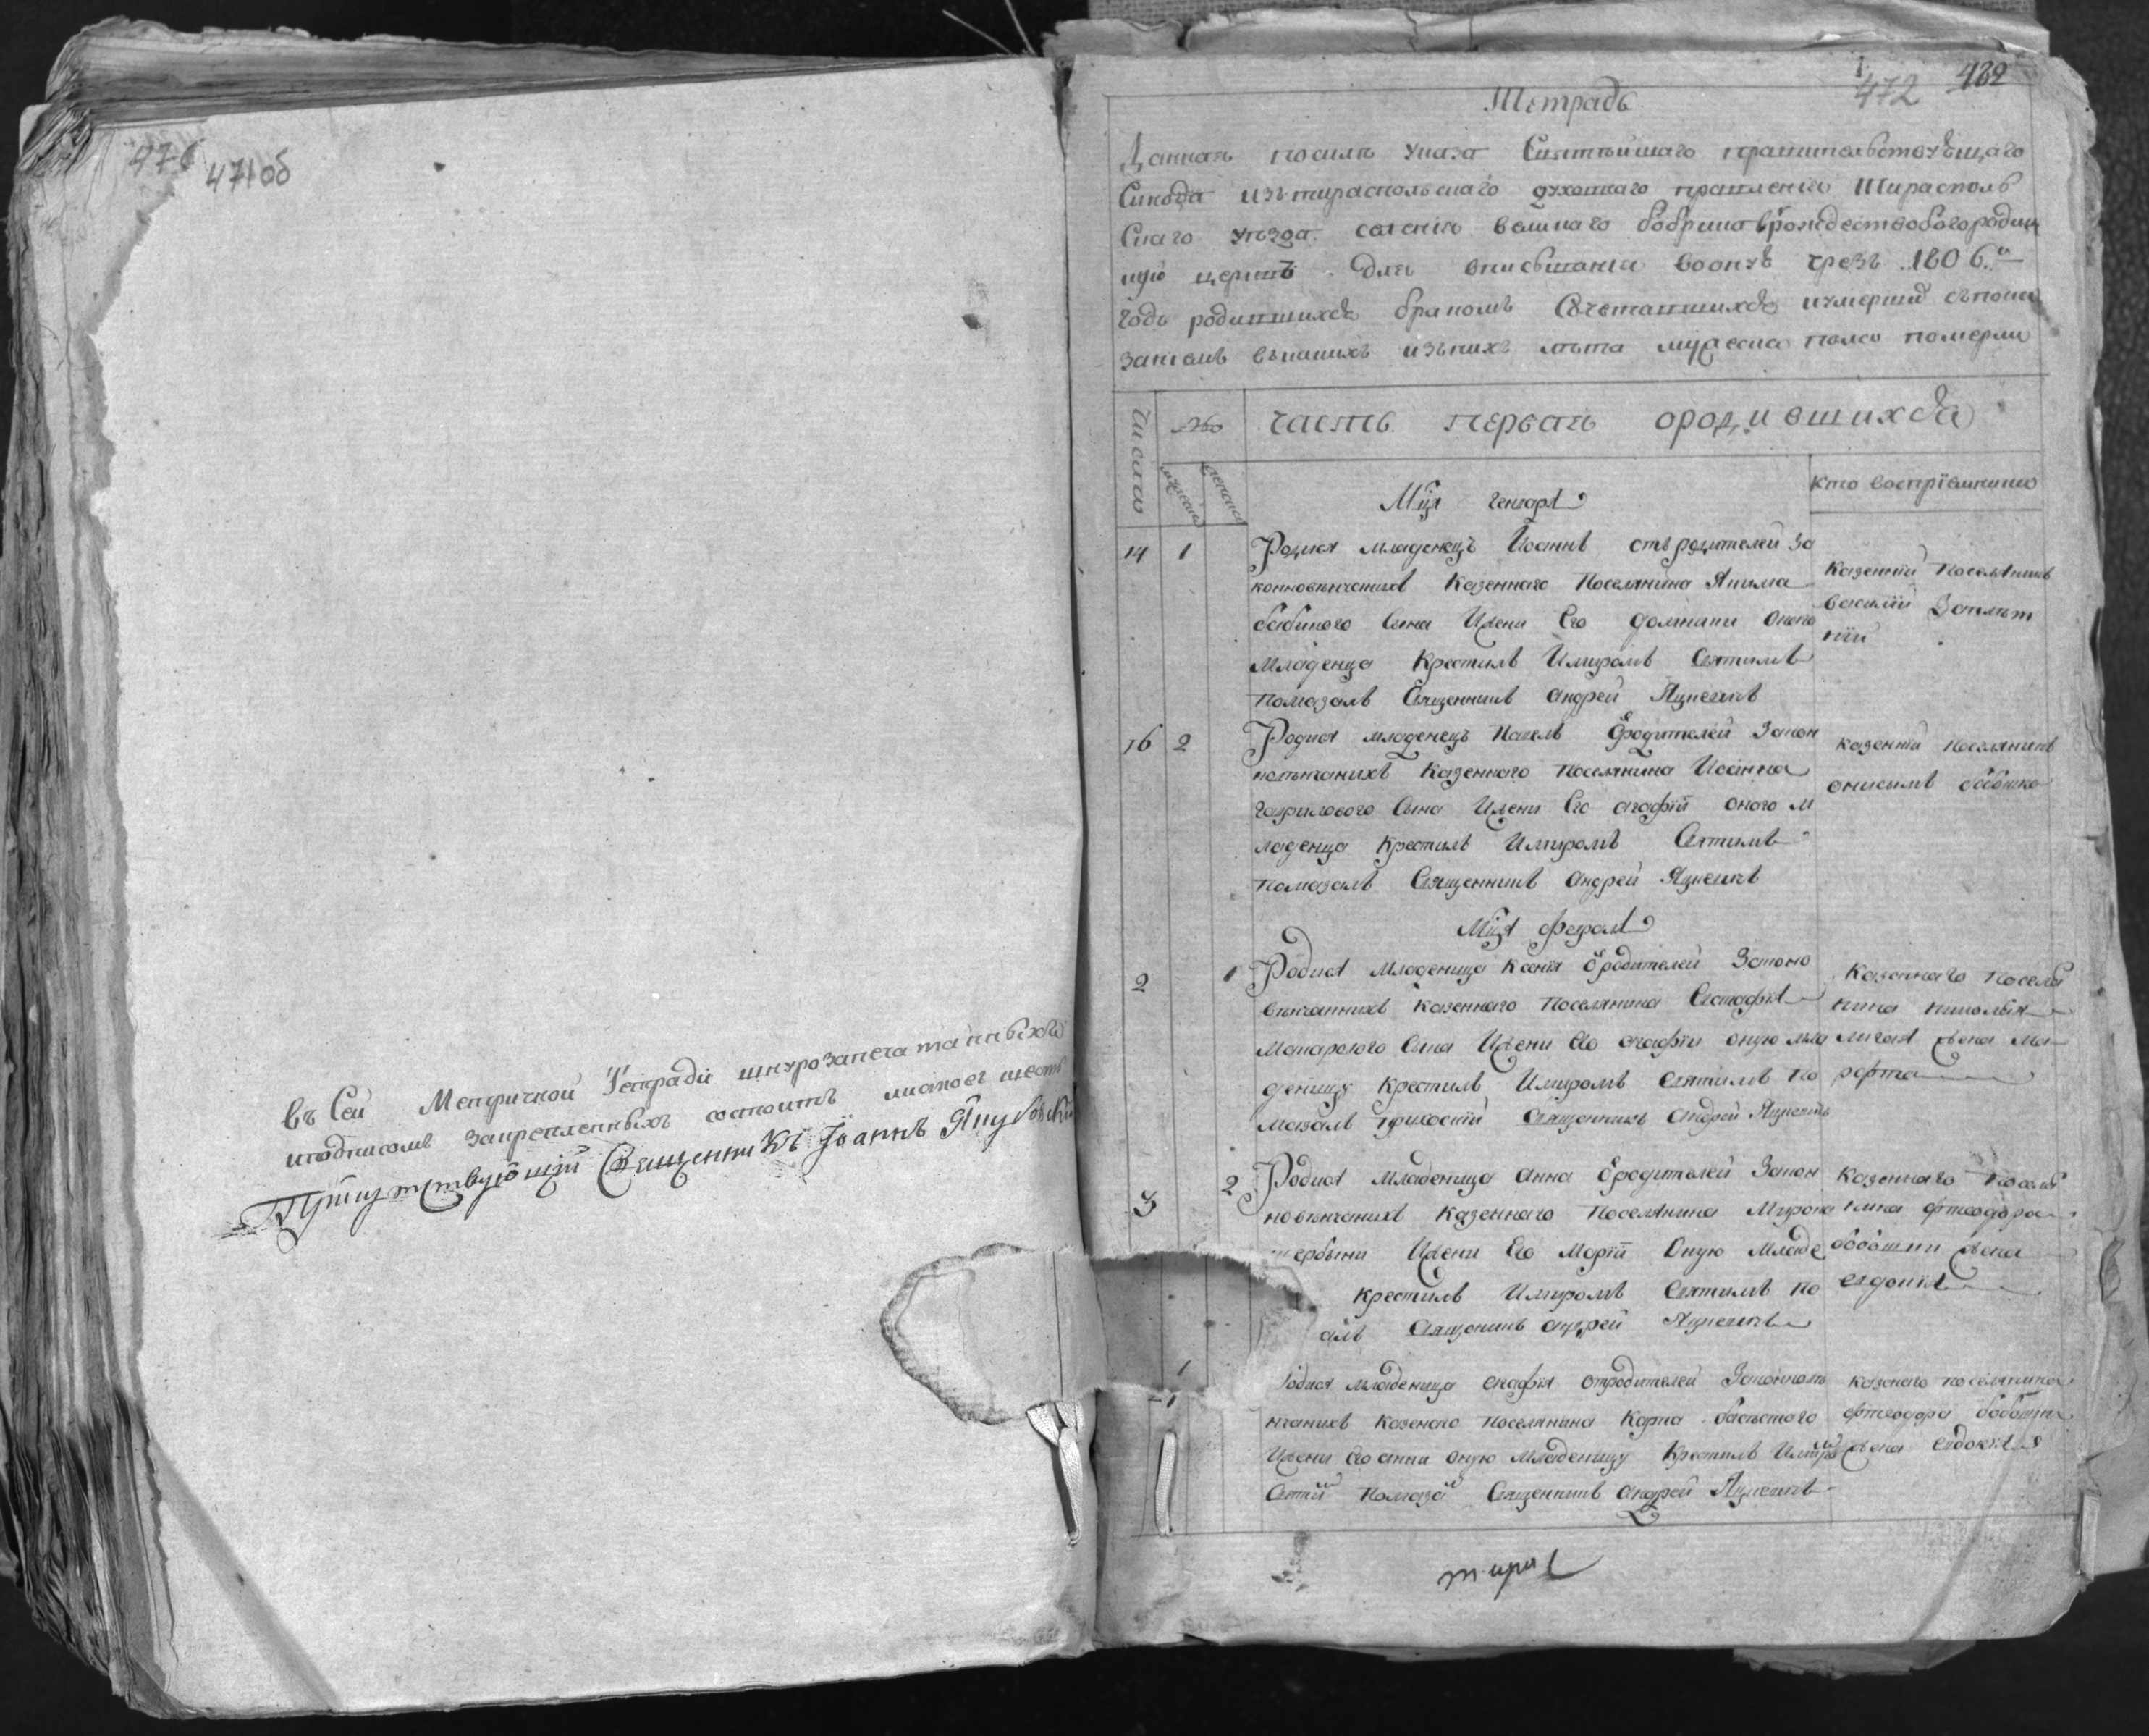 471об
въ Сей Метричной Тетради шнурозапечатанныхъ
иподписомъ закрепленныхъ состоитъ листовъ шесть
Присутствующій Священникъ Іоаннъ Якубовскій
472 482
Тетрадь
Данная посилѣ указа Святѣйшаго правительствующаго
Синода изътираспольскаго духовнаго правленія Тирасполь
скаго уѣзда селенія бобринца врождествобогородич
ную церквь для вписыванія воонуъ чрезъ 1806й
годъ родившихся бракомъ Сочетавшихся иумершихъ съпока
заніемъ вкакихъ изънихъ лѣта мужеска полса померли
Число часть первая ородившихся
мужеска женска Мця генваря кто воспріемники
14 1 Родися младенецъ Иоаннъ отъродителей за
конновѣнчаныхъ Казеннаго Поселянина Якима
Сына Ижени Его домникии Онаго
Младенца Крестилъ Имиромъ Святимъ
Помазалъ Священникъ Андрей
Казенній Поселянинъ
василій
16 2 Родися младенецъ Павелъ ѿродителей Закон
новѣнчанихъ Казеннаго Поселянина Иоанна
гаврилового Сына Ижени Его агафіи оного м
ладенца Крестилъ Имиромъ Святимъ
Помазалъ Священникъ Андрей
казенній Поселянинъ
онисимъ бобошко
Мця Февраля
2 1 Родися Младеница Ксенія ѿродителей Законо
вѣнчанихъ казеннаго Поселянина Евстафія
Макарового Сына Ижени Его агафіи оную мла
деницу Крестилъ Имиромъ Святимъ по
мазалъ Священникъ Андрей
Казеннаго поселя
нина николая
жена ма
рфта
3 2 Родися Младеница Анна ѿродителей Закон
новѣнчанихъ Казеннаго Поселянина Мирона
щербини Ижени Его Маріи Оную Младе
Крестилъ Имиромъ Святимъ по
алъ Священикъ андрей
Казеннаго поселя
нина фтеодора
бобошки жена
евдокия
1 одися младеница агафия отродителей Законновѣ
нчанихъ казенаго поселянина Карпа
Ижени Его анни оную Младеницу Крестилъ Имиром
Святим Помаза Священникъ Андрей
казенаго поселянина
фтеодора бобошки
жена евдокия
тирас